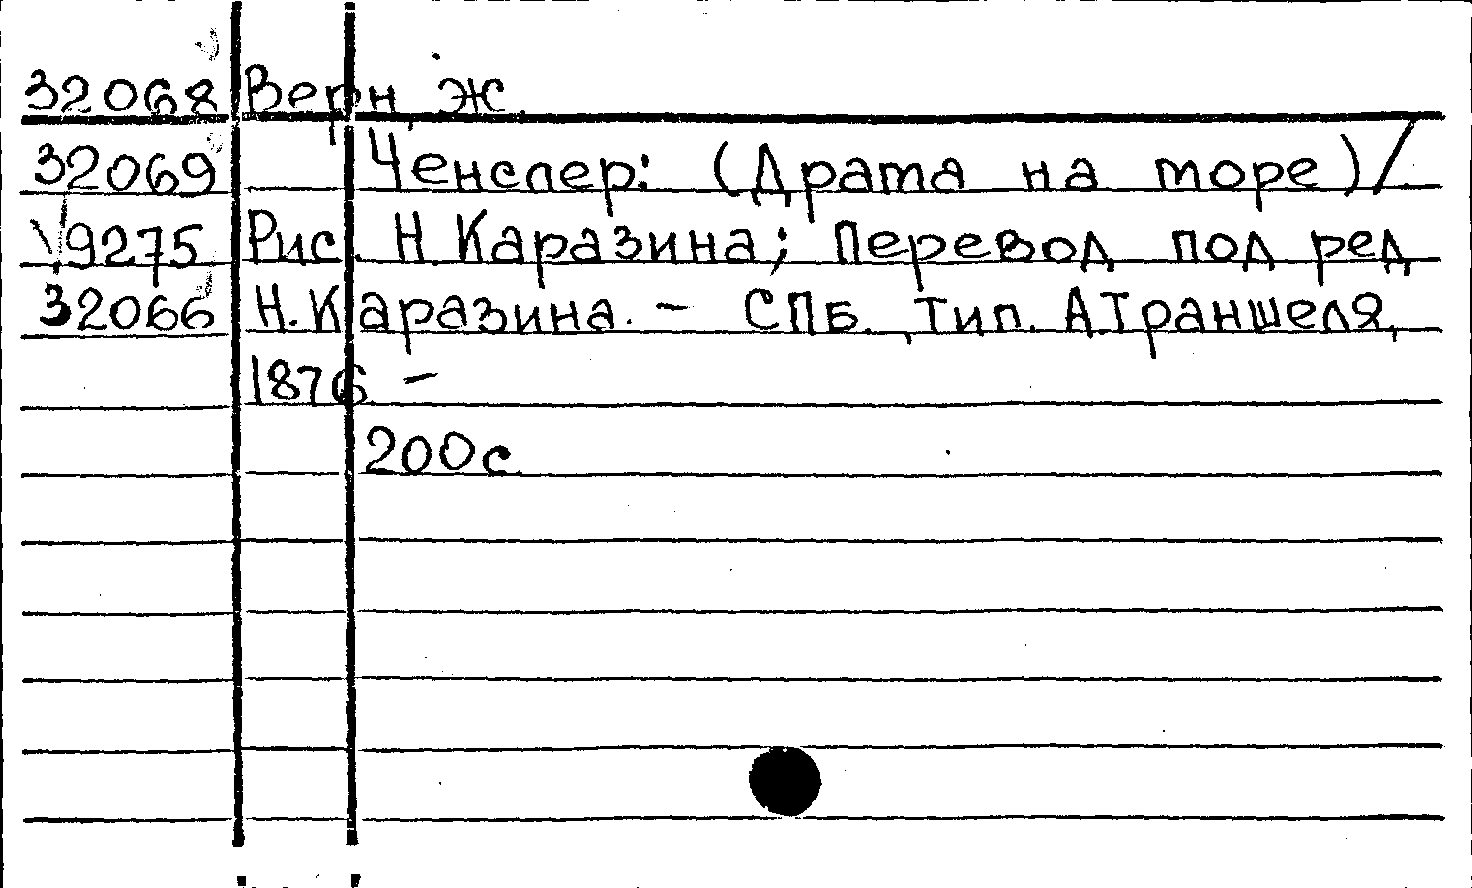 32068 Верн, Ж
32069 Ченслер: (Драта на море) /
9275 Рис. Н. Каразина; Перевод под ред
32066 Н. Каразина. - СПб., Тип. А.Траншеля,
1876 -
200с